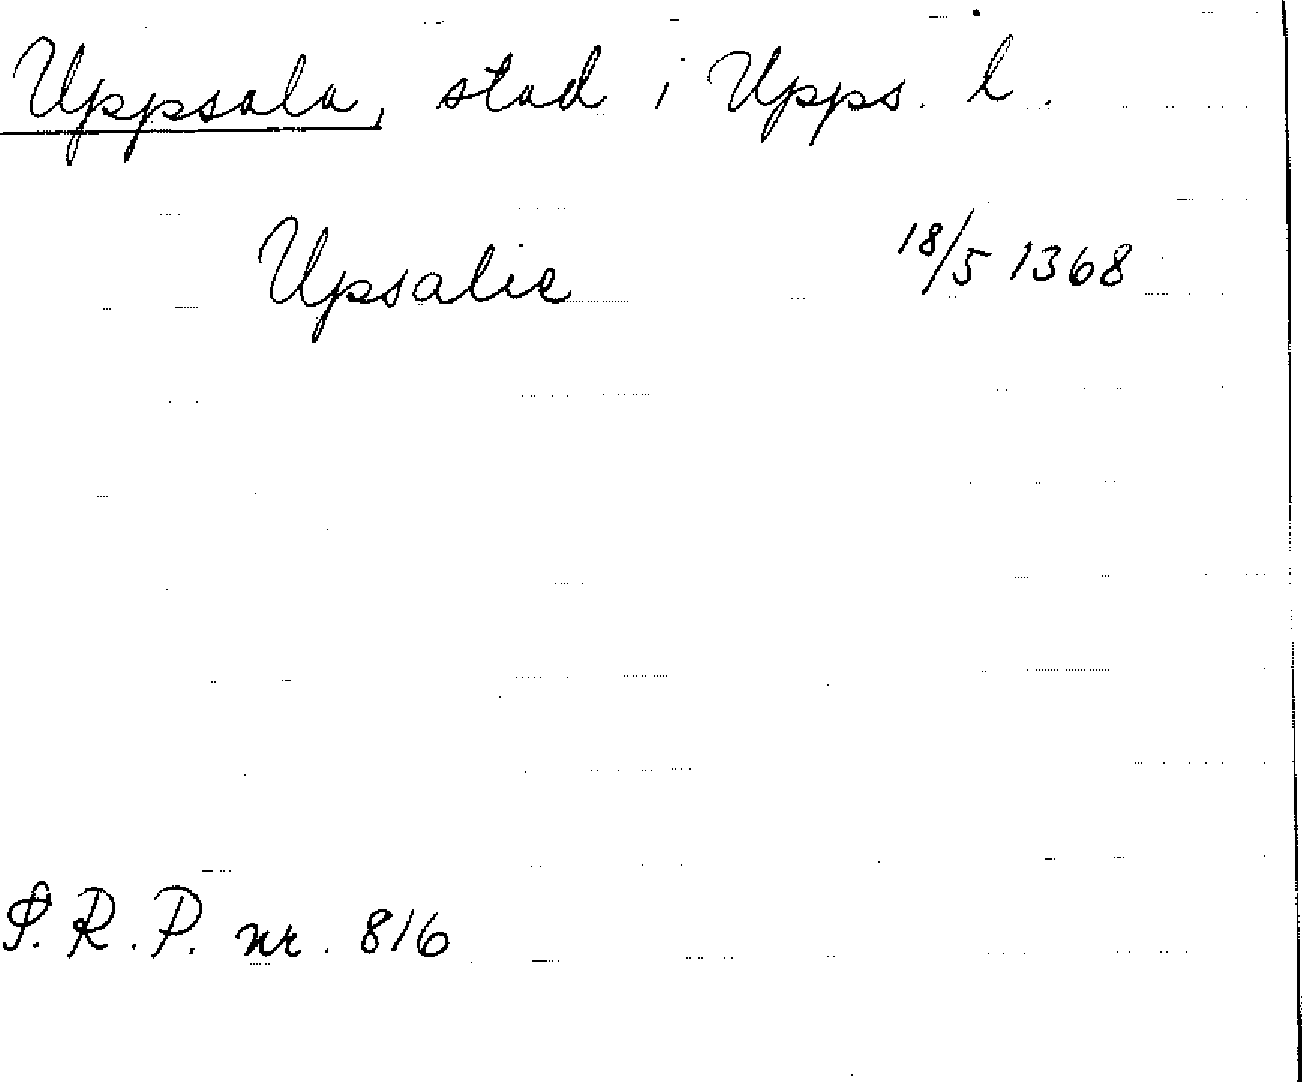 Uppsala, stad i Upps. l.
Upsalie 18/5 1368
S.R.P. nr. 816